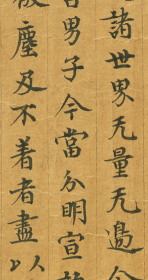 諸世界无量无邊
男子今當分明宣
塵及不着者盡以